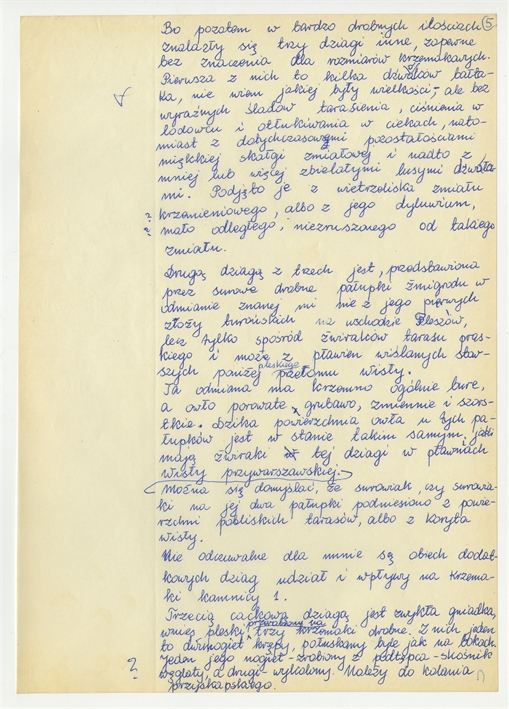 5
Bo pozatem w bardzo drobnych ilościach
znalazły się trzy dziagi inne, zapewne
bez znaczenia dla rozmiarów krzemakowych.
Pierwsza z nich to kilka dźwałków bałta-
ka, nie wiem jakiej były wielkości, ale bez
wyraźnych śladów tarasienia, ciśnienia w
lodowcu i otłukiwania w ciekach, nato-
miast z dotychczasowymi pozostałościami
miękkiej skałgi żmiałowej i nadto z
mniej lub więcej zbielałymi łusymi
mi. Podjęto je z wietrzeliska żmiału
krzemieniowego, albo z jego dyluwium,
mało odległego, niezruszonego od takiego
żmiału.
Drugą dziagą z trzech jest, przedstawiona
przez surowe drobne pałupki żmigrodu w
odmianie znanej mi nie z jego pierwszych
złoży turońskich na wschodzie
lecz tylko spośród żwiraków tarasu pras-
kiego i może z pławien wiślanych star-
szych poniżej pleskiego przełomu wisły.
Ta odmiana ma krzemno ogólnie bure,
a owło porowate, grubawo, zmiennie i szors-
tkie. Dzika powierzchnia owła u tych pa-
łupków jest w stanie takim samym, jaki
mają żwiraki tej dziagi w pławniach
wisły przywarszawskiej.
Można się domyślać, że surowiak czy surowia-
ki na jej dwa pałupki podniesiono z powie-
rzchni pobliskich tarasów, albo z koryta
wisły.
Nie odczuwalne dla mnie są obech dodat-
kowych dziag udział i wpływy na krzema-
ki kamnicy 1.
Trzecią całkową dziagą jest zwykła gniadka,
wnies pleski przerabiany na trzy krzemaki drobne. Z nich jeden
to dwunogiet krępy, pałuskany byle jak na bokach.
Jeden jego nogiet - zrobiony z podłupca - skośnik
węgłaty, a drugi - wykolony. Należy do kolania
?